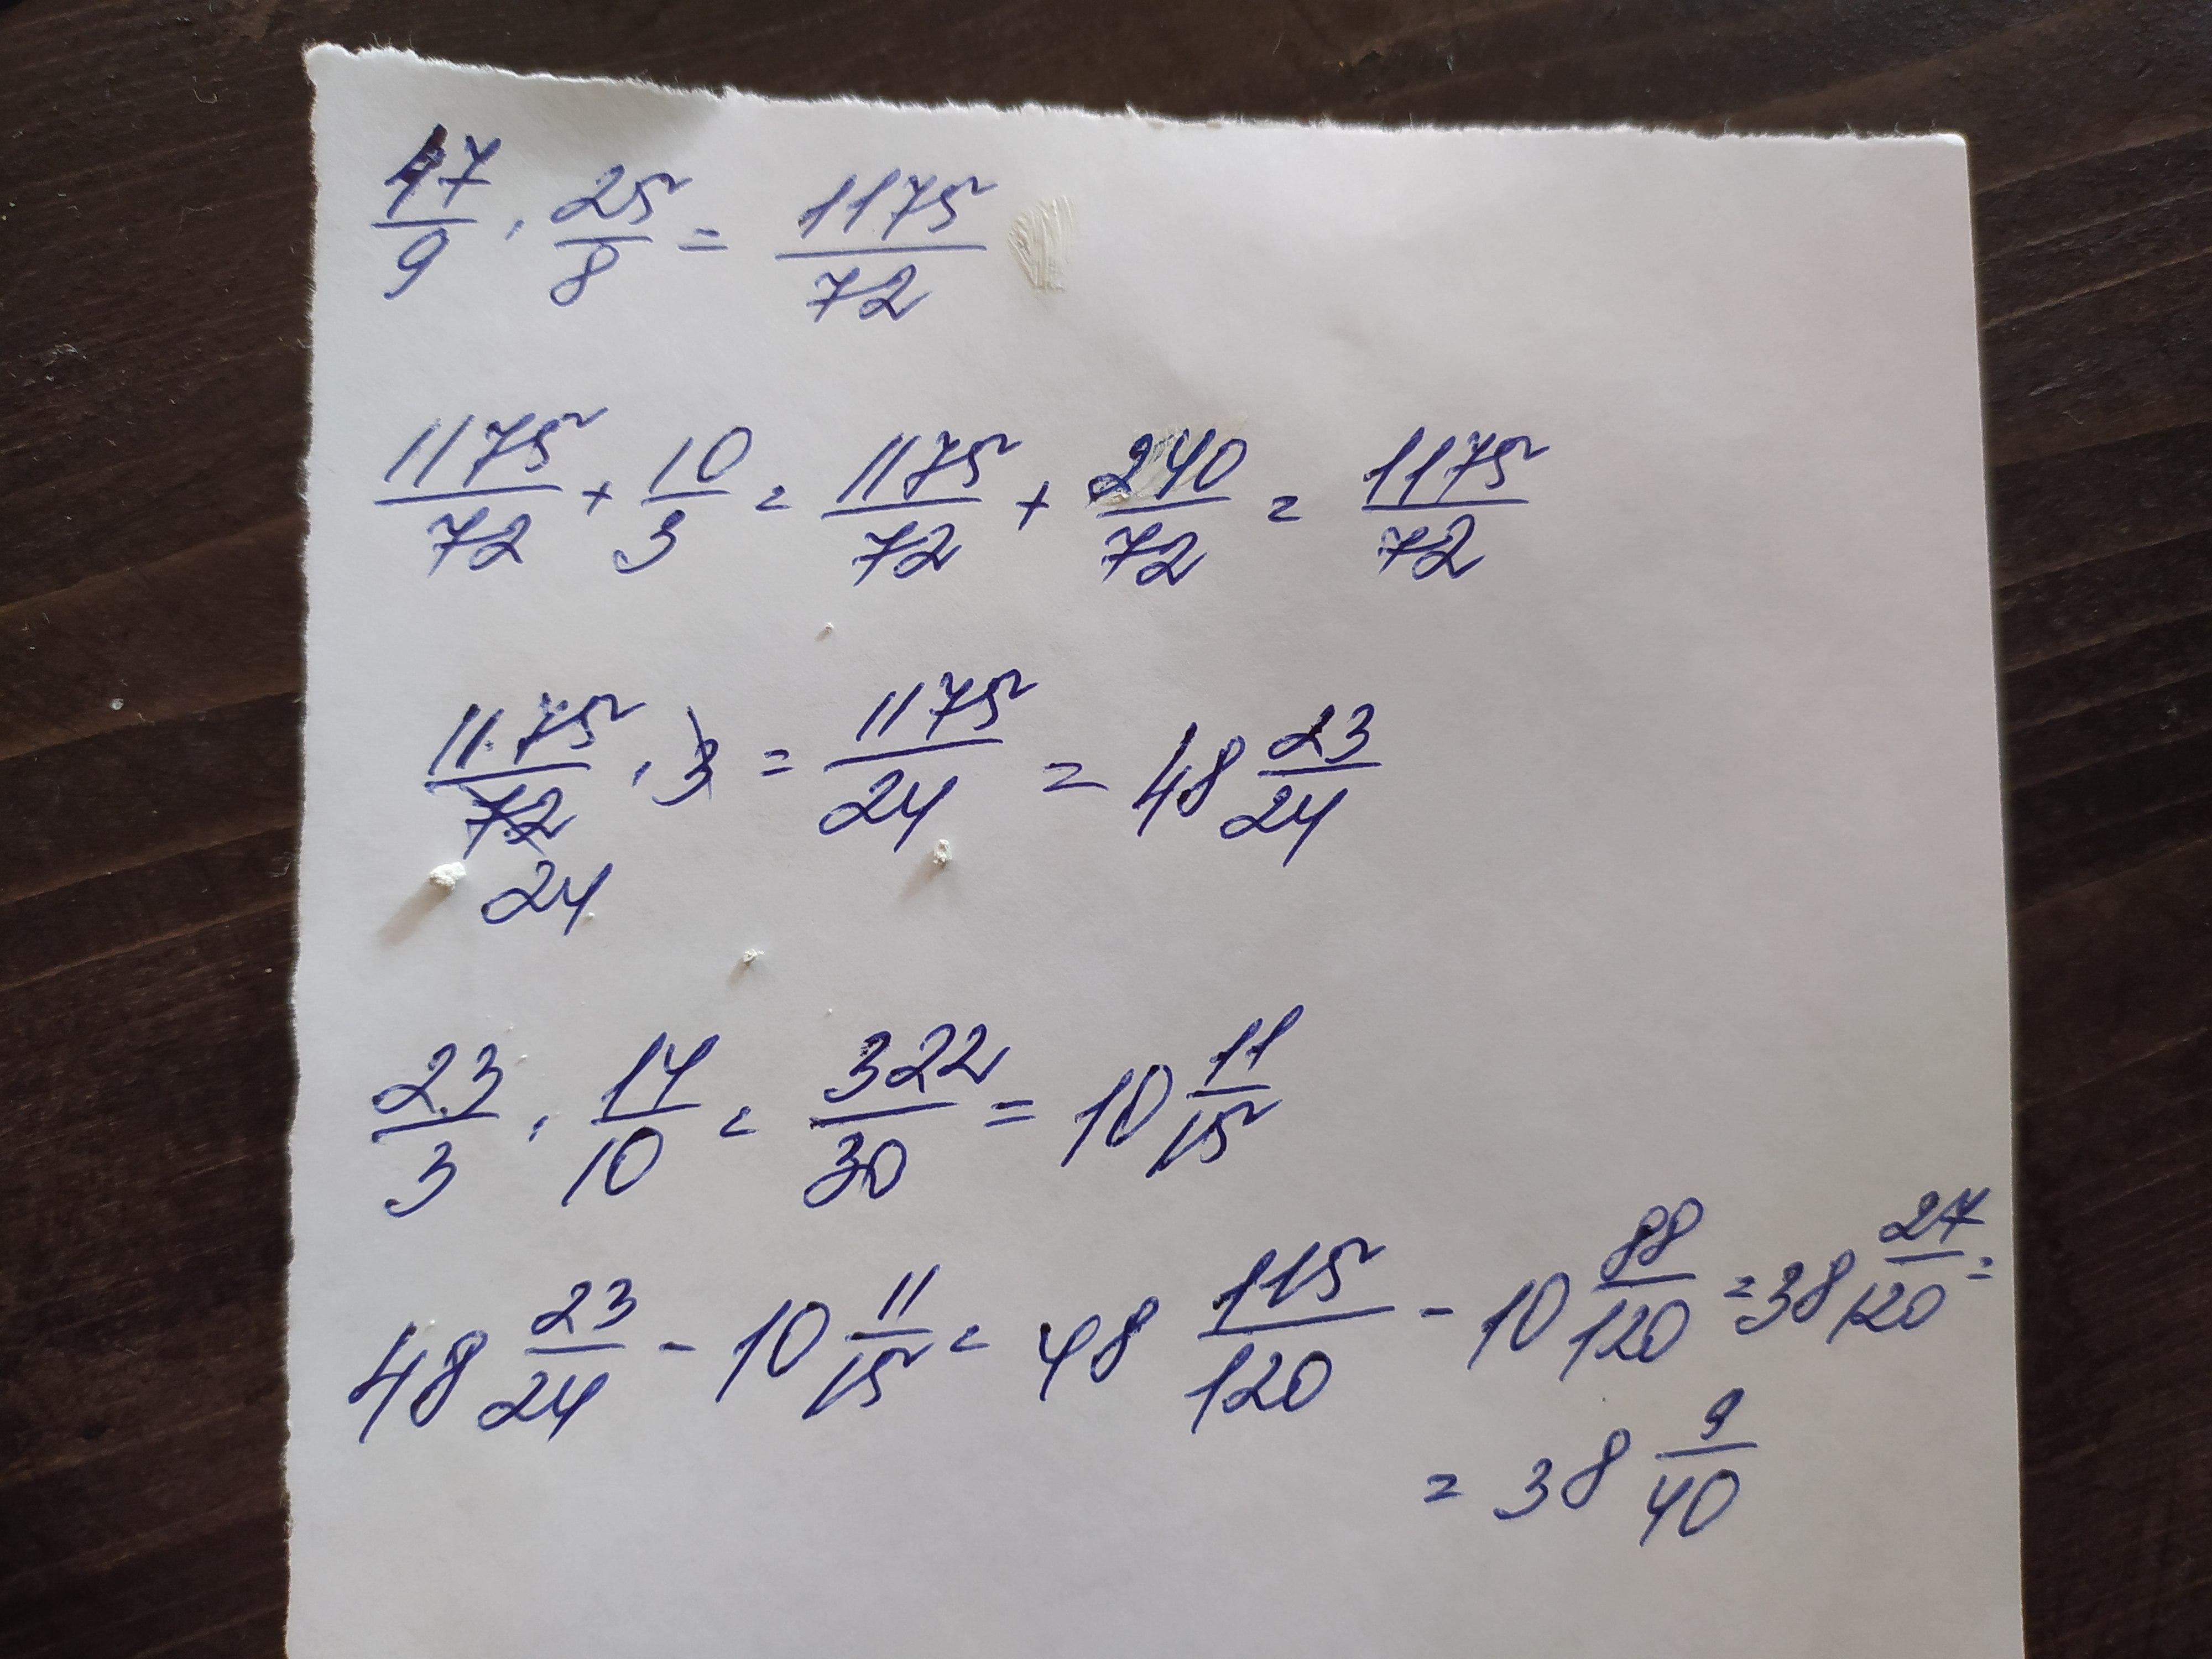 47/9 · 25/8 = 1175/72
1175/72 + 10/3 = 1175/72 + 240/72 = 1175/72
1175/72 · 3 = 1175/24 = 48 23/24
24
23/3 · 14/10 = 322/30 = 10 11/15
48 23/24 - 10 11/15 = 48 115/120 - 10 88/120 = 38 27/120 =
= 38 9/40